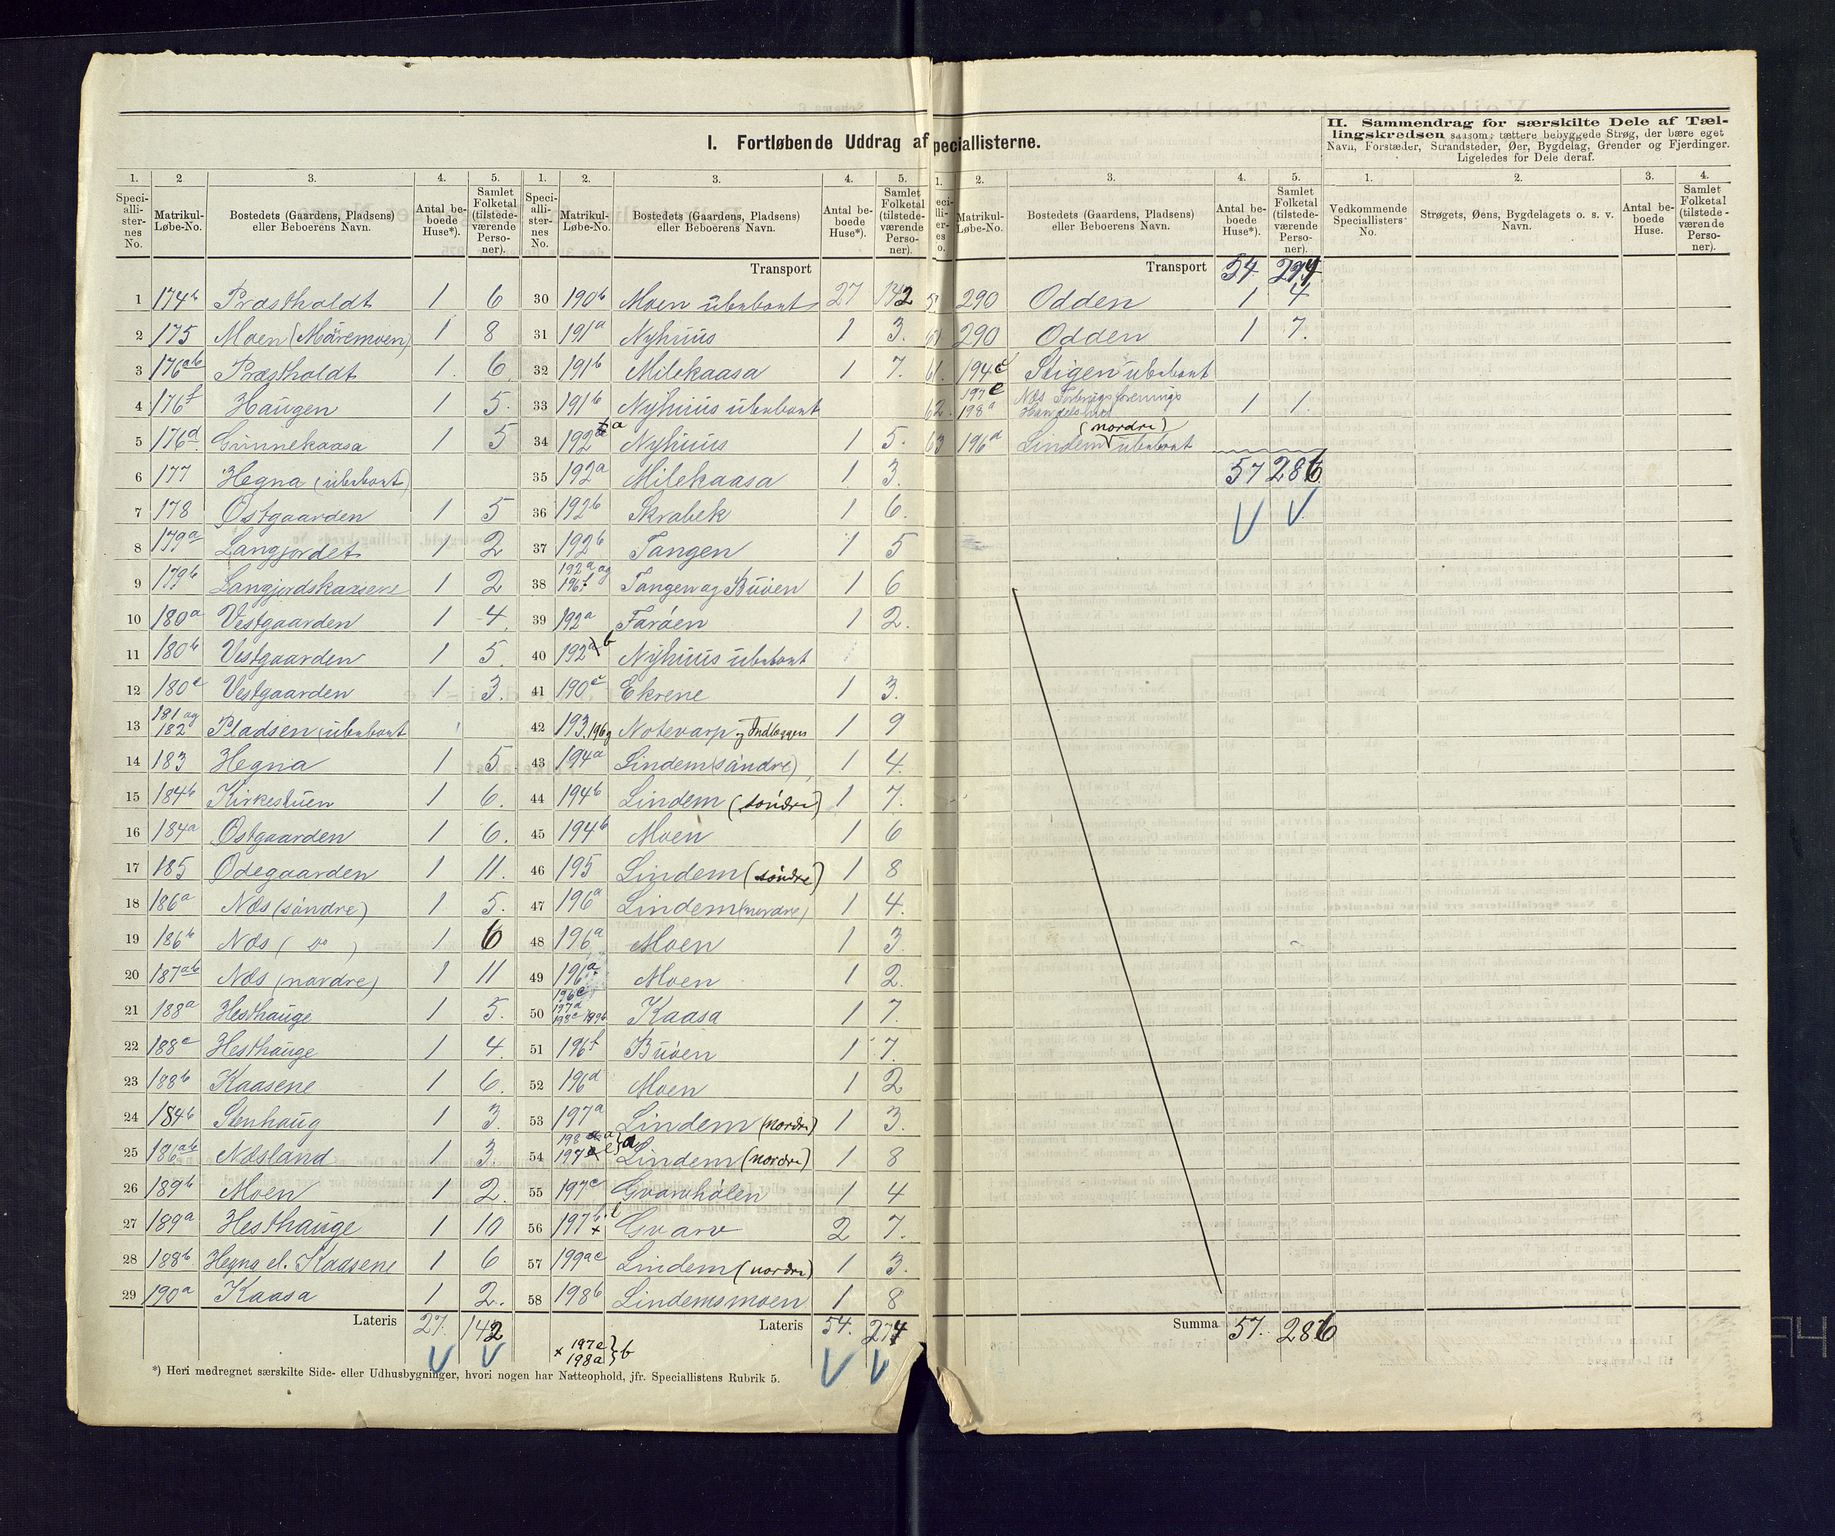 I. Fortløbende Uddrag af Speciallisterne.
II. Sammendrag for særskilte Dele af Tællingskredsen saasom: tættere bebyggede Strøg, der bære eget
Navn, Forstæder, Strandsteder, Øer, Bygdelag, Grender og Fjerdinger.
Ligeledes for Dele deraf.
1. 2. 3. 4. 5.
Speciallisternes No. Matrikul-Løbe-No. Bostedets (Gaardens, Pladsens) eller Beboerens Navn. Antal beboede Huse*). Samlet Folketal (tilstedeværende Personer).
1 174b Præstholdt 1 6
2 175 Moen (Märemoen) 1 8
3 176ab Præstholdt 1 6
4 176f Haugen 1 5.
5 176d Gunnekaasa 1 5
6 177 Hegna (ubeboet)
7 178 Østgaarden 1 5
8 179a Langjordet 1 2
9 179b Langjordskaasene 1 2
10 180a Vestgaarden 1 4.
11 180b Vestgaarden 1 5.
12 180c Vestgaarden 1 3.
13 181 og 182 Pladsen (ubeboet
14 183 Hegna 1 5
15 184b Kirkestuen 1 6.
16 184a Østgaarden 1 6.
17 185 Ödegaarden 1 11.
18 186a Næs (söndre) 1 5.
19 186b Næs ( do ) 1 6
20 187ab Næs (nordre) 1 11
21 188a Hesthauge 1 5.
22 188c Hesthauge 1 4.
23 188b Kaasene 1 6.
24 184b Stenhaug 1 3.
25 186ab Næsland 1 3.
26 189b Moen 1 2.
27 189a Hesthauge 1 10
28 188b Hegna el. Kaasene 1 6
29 190a Kaasa 1 2.
Lateris 27. 142
1. 2. 3. 4. 5.
Speciallisternes No. Matrikul-Løbe-No. Bostedets (Gaardens, Pladsens) eller Beboerens Navn. Antal beboede Huse*). Samlet Folketal (tilstedeværende Personer).
Transport
30 190b Moen ubeboet 27 142
31 191a Nyhuus 1 3.
32 191b Milekaasa 1 7.
33 191b Nyhuus ubeboet
34 192a Nyhuus 1 5.
35 192a Milekaasa 1 3.
36 192b Skrabek 1 6.
37 192b Tangen 1 5
38 192a og 196f Tangen og Buöen 1 6
39 192a Faröen 1 2.
40 192b Nyhuus ubeboet
41 190c Ekrene 1 3.
42 193. 196g Notevarp og Indlæggen 1 9
43 194a Lindem (söndre) 1 4.
44 194b Lindem (söndre) 1 7.
45 194b Moen 1 6
46 195 Lindem (söndre) 1 8
47 196a Lindem (nordre) 1 4.
48 196a Moen 1 3.
49 196a Moen 1 2.
50 196e 197d 198c 199b Kaasa 1 7.
51 196f Buöen 1 7.
52 196d Moen 1 2
53 197a Lindem (nordre) 1 3.
54 198a 197e}a Lindem (nordre) 1 8
55 197c Gvarvhölen 1 4
56 197b Gvarv 2 7.
57 199ac Lindem (nordre) 1 3.
58 198b Lindemsmoen 1 8
Lateris 54. 274
x 197e 198a } b
*) Heri medregnet særskilte Side- eller Udhusbygninger, hvori nogen har Natteophold, jfr. Speciallistens Rubrik 5.
1. 2. 3. 4. 5.
Matrikul-Løbe-No. Bostedets (Gaardens, Pladsens) eller Beboerens Navn. Antal beboede Huse*). Samlet Folketal (tilstedeværende Personer).
Transport 54. 274
290 Odden 1 4
290 Odden 1 7.
61. 194c Stigen ubeboet
62. 197e 198a Næs Forbrugsforenings Handelshus 1 1.
63 196d Lindem (nordre) ubeboet
57 286
Summa 57. 286
1. 2. 3. 4.
Vedkommende Speciallisters No. Strøgets, Øens, Bygdelagets o. s. v. Navn. Antal beboede Huse. Samlet Folketal (tilstedeværende Personer).